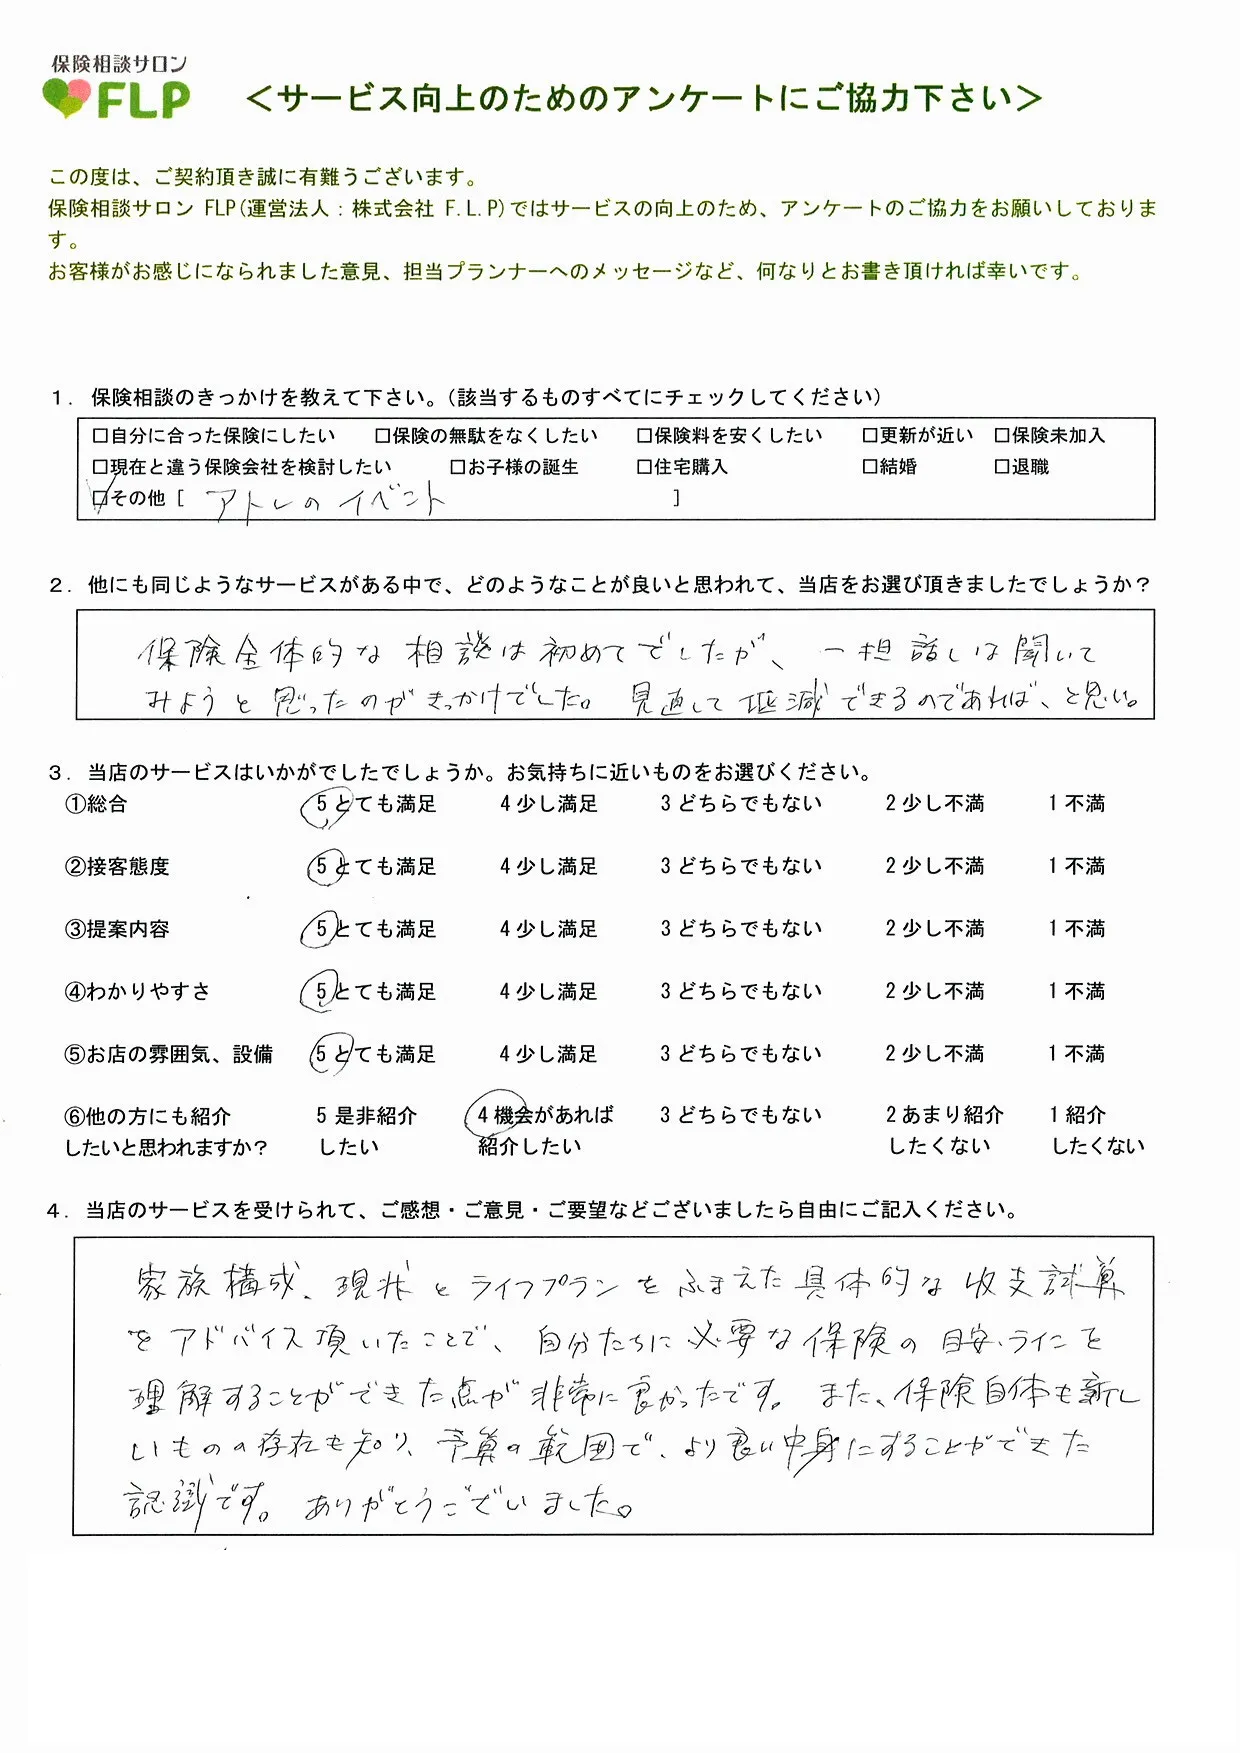 保険相談サロン
FLP
＜サービス向上のためのアンケートにご協力下さい＞
この度は、ご契約頂き誠に有難うございます。
保険相談サロン FLP(運営法人：株式会社 F.L.P)ではサービスの向上のため、アンケートのご協力をお願いしておりま
す。
お客様がお感じになられました意見、担当プランナーへのメッセージなど、何なりとお書き頂ければ幸いです。
１．保険相談のきっかけを教えて下さい。（該当するものすべてにチェックしてください）
□自分に合った保険にしたい □保険の無駄をなくしたい □保険料を安くしたい □更新が近い □保険未加入
□現在と違う保険会社を検討したい □お子様の誕生 □住宅購入 □結婚 □退職
☑その他 [ アトレのイベント ]
２．他にも同じようなサービスがある中で、どのようなことが良いと思われて、当店をお選び頂きましたでしょうか？
保険全体的な相談は初めてでしたが、一担話しは聞いて
みようと思ったのがきっかけでした。見直して低減できるのであれば、と思い。
３．当店のサービスはいかがでしたでしょうか。お気持ちに近いものをお選びください。
①総合 5 とても満足 4 少し満足 3 どちらでもない 2 少し不満 1 不満
②接客態度 5 とても満足 4 少し満足 3 どちらでもない 2 少し不満 1 不満
③提案内容 5 とても満足 4 少し満足 3 どちらでもない 2 少し不満 1 不満
④わかりやすさ 5 とても満足 4 少し満足 3 どちらでもない 2 少し不満 1 不満
⑤お店の雰囲気、設備 5 とても満足 4 少し満足 3 どちらでもない 2 少し不満 1 不満
⑥他の方にも紹介 5 是非紹介 4 機会があれば 3 どちらでもない 2 あまり紹介 1 紹介
したいと思われますか？ したい 紹介したい したくない したくない
４．当店のサービスを受けられて、ご感想・ご意見・ご要望などございましたら自由にご記入ください。
家族構成、現状とライフプランをふまえた具体的な収支試算
をアドバイス頂いたことで、自分たちに必要な保険の目安・ラインを
理解することができた点が非常に良かったです。また、保険自体も新し
いものの存在も知り、予算の範囲で、より良い中身にすることができた
認識です。ありがとうございました。